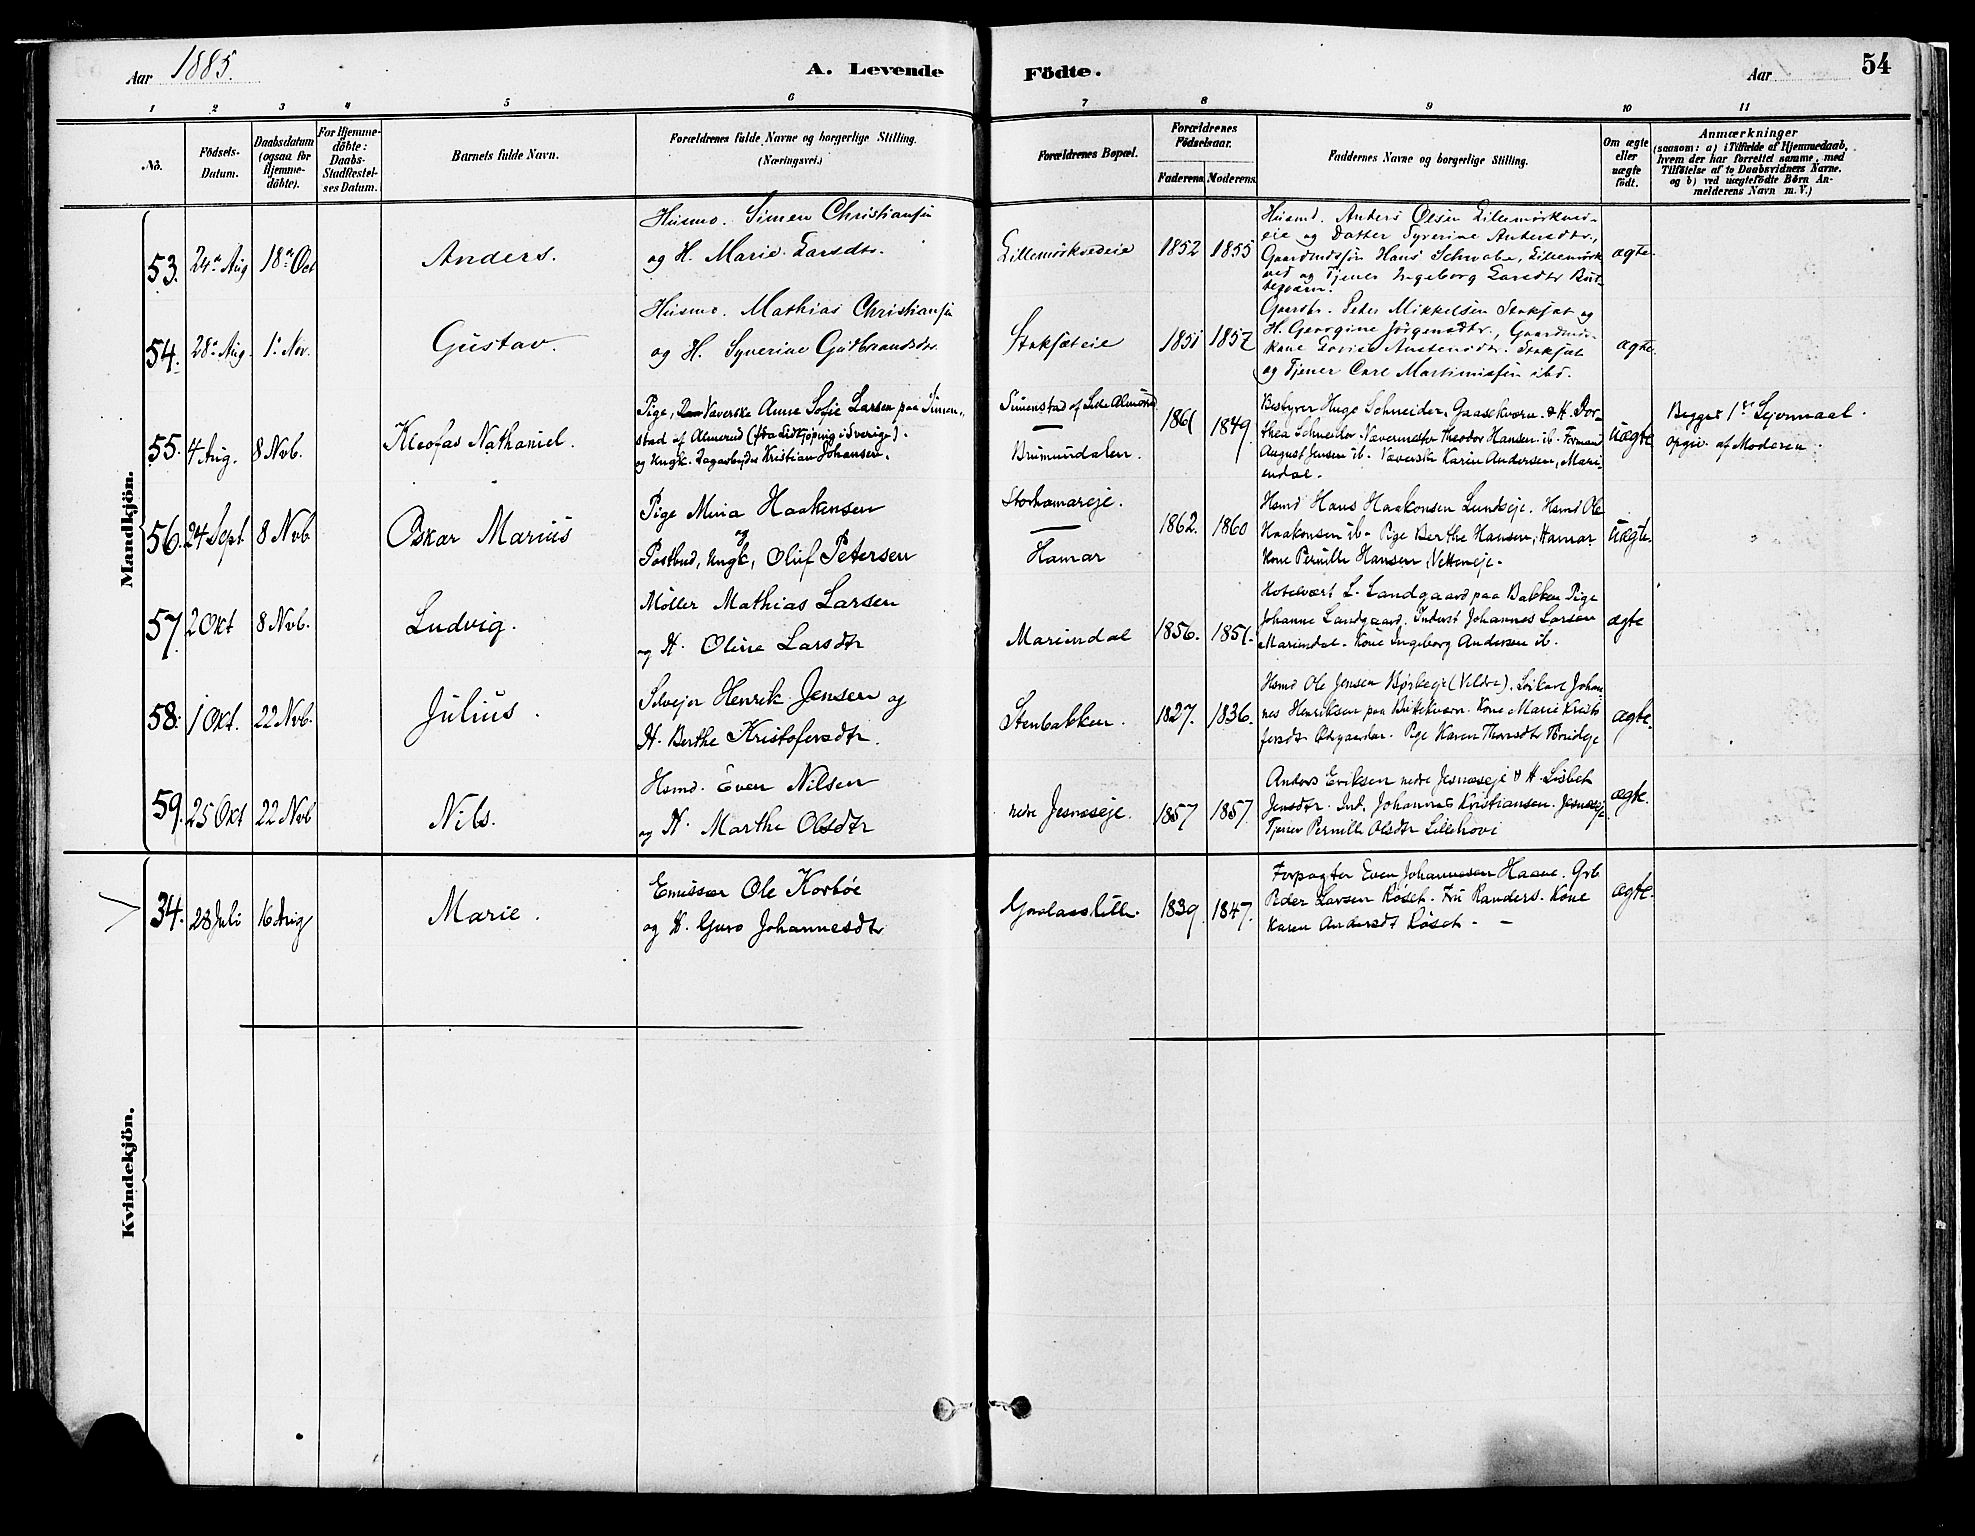 Aar 1885.
A. Levende Födte.
Aar
54
1 2 3 4 5 6 7 8 9 10 11
No.
Födsels-Datum.
Daabsdatum (ogsaa for Hjemme-döbte).
For Hjemme-döbte: Daabs-Stadfæstel-ses Datum.
Barnets fulde Navn.
Forældrenes fulde Navne og borgerlige Stilling. (Næringsvei.)
Forældrenes Bopæl.
Forældrenes Födselsaar.
Faderens Moderens
Faddernes Navne og borgerlige Stilling.
Om ægte eller uægte födt.
Anmærkninger
(saasom: a) i Tilfælde af Hjemmedaab,
hvem der har forrettet samme, med
Tilföielse af to Daabsvidners Navne.
og b) ved uægtefödte Börn An-
melderens Navn m. V.)
Mandkjön.
53. 24de Aug 18de Oct
Anders.
Husmd. Simen Christiansen
og H. Marie Larsdtr.
Lillemörkvedeie 1852 1855
Husmd. Anders Olsen Lillemörkved-
eie og Datter Syverine Andersdtr.,
Gaardmdssön Hans Schwabe, Lillemörk
ved og Tjener Ingeborg Larsdtr
ægte.
54. 28de Aug 1ste Nov.
Gustav.
Husmd. Mathias Christiansen
og H. Syverine Gulbrandsdtr.
Stokfæteie 1851 1857
Gaardbr. Peder Mikkelsen Stokfæt og
H. Georgine Jörgensdtr., Gaardmds-
kone Lovise Austensdtr. Stokfæt
og Tjener Carl Martiniussen ibd.
ægte.
55. 4 Aug. 8 Nvb.
Kleofas Nathaniel.
Pige, Væverske Anne Sofie Larsen paa Simen-
stad af Almerud (fra Lidkjöping i Sverige).
og Ungk. Dagarbeider Kristian Johansen.
Simenstad af Lille Almerud
Brumundalen. 1861 1849.
Bestyrer Hugo Schneider, Gaasekværn. & H. Dor-
thea Schneider. Vævermester Theodor Hansen ib. Formand
August Jensen ib. Væverske Karin Andersen, Mari-
endal.
Uægte
Begges 1ste Lejermaal.
opgiv. af Moderen.
56. 24 Sept 8 Nvb
Oskar Marius
Pige Mina Haakensen
og
Postbud, Ungk, Oluf Petersen
Storhamareje.
Hamar 1862. 1860
Hsmd Hans Haakonsen Lundseje. Hsmd Ole
Haakonsen ib. Pige Berthe Hansen, Hamar
Kone Pernille Hansen, Vetteneje.
Uægte.
"
57. 2 Okt 8 Nvb.
Ludvig.
Møller Mathias Larsen
og H. Oline Larsdtr
Mariendal 1856. 1851.
Hotelvært L. Landgaard paa Bakken Pige
Johanne Landgaard. Inderst Johannes Larsen
Mariendal. Kone Ingeborg Andersen ib.
ægte
58. 1 Okt. 22 Nvb.
Julius.
Selvejer Henrik Jensen og
H. Berthe Kristofersdtr.
Stenbakken. 1827. 1836.
Hsmd Ole Jensen Børkeeje (Veldre). Løskarl Johan-
nes Henriksen paa Brittekværn. Kone Marie Kristo
fersdtr Ødegaarden. Pige Karen
ægte.
59. 25 Okt 22 Nvb
Nils.
Hsmd. Even Nilsen
og H. Marthe Olsdtr
nedre Jesnæseje. 1857 1857.
Anders Eriksen nedre Jesnæseje & H. Lisbet
Jensdtr. Ind. Johannes Kristiansen. Jesnæseje
Tjener Pernille Olsdtr Lillehove
ægte.
Kvindekjön.
34. 28 Juli 16 Aug
Marie.
Emissær Ole Korbøe
og H. Guro Johannesdtr
1839 1847.
Forpagter Even Johannesen Haave. Grb
Peder Larsen Røset. Fru Randers. Kone
Karen Andersdt Røset. —
ægte.